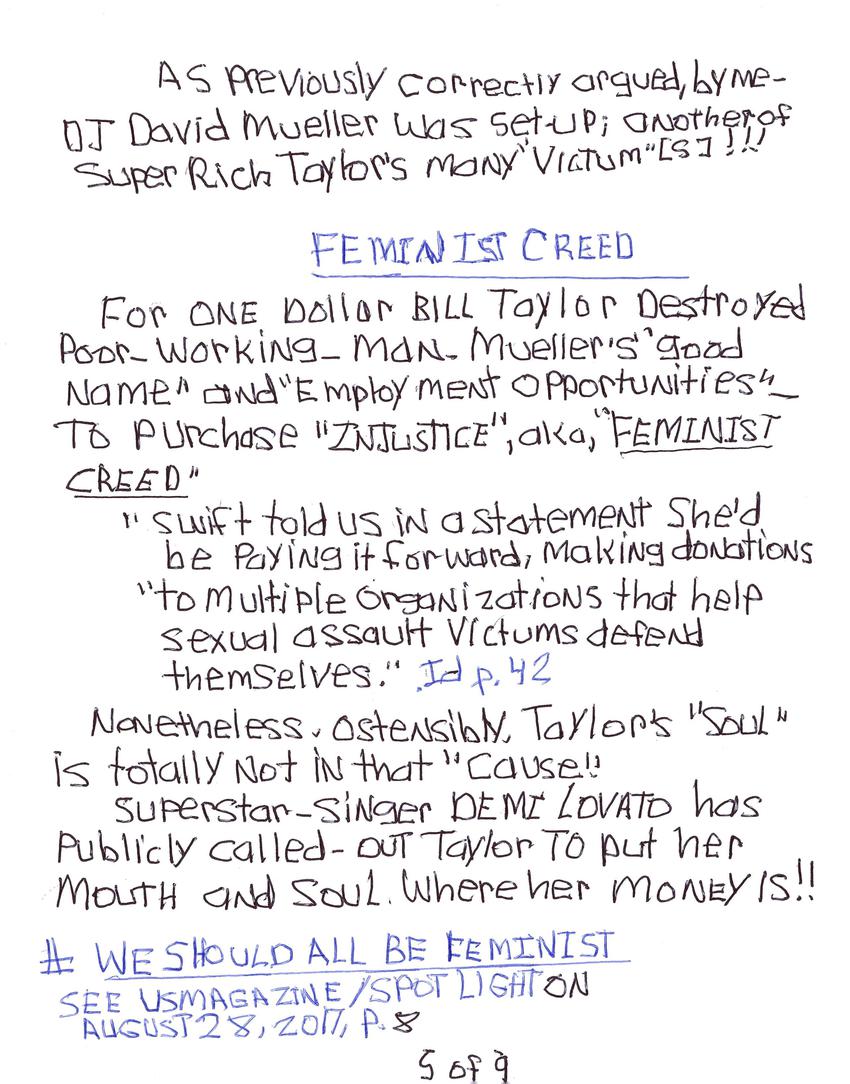 As previously correctly argued, by me-
DJ David Mueller was set-up; another of
Super Rich Taylor's many "Victum"[s]!!!
FEMINIST CREED
For ONE Dollar BILL Taylor Destroyed
Poor-Working-Man-Mueller's "good
Name" and "Employment Opportunities"-
To Purchase "INJUSTICE", aka, "FEMINIST
CREED"
" Swift told us in a statement She'd
be paying it forward, making donations
"to multiple organizations that help
sexual assault Victums defend
themselves." Id p. 42
Nonetheless, Ostensibly, Taylor's "Soul"
is totally Not in that "Cause!!
Superstar-Singer DEMI LOVATO has
Publicly called-OUT Taylor TO put her
MOUTH and Soul. Where her MONEY IS!!
# WE SHOULD ALL BE FEMINIST
SEE USMAGAZINE/SPOT LIGHT ON
AUGUST 28, 2017, P. 8
5 of 9